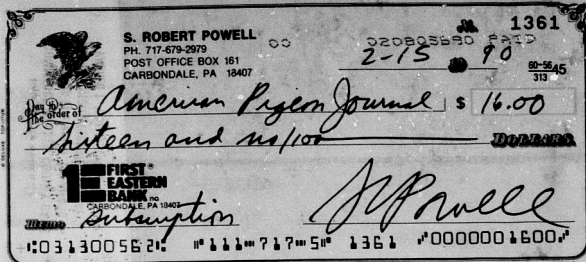 1361
S. ROBERT POWELL
PH. 717-679-2979
POST OFFICE BOX 161
CARBONDALE, PA 18407
020805690 PAID
2-15 1990
60-5645
313
Pay to the order of American Pigeon Journal $ 16.00
Sixteen and no/100 DOLLARS
1 FIRST EASTERN BANK NA
CARBONDALE, PA 18407
MEMO Subscription SRPowell
⑆031300562⑆ ⑈111⑉717⑉5⑈ 1361 ⑈0000001600⑈